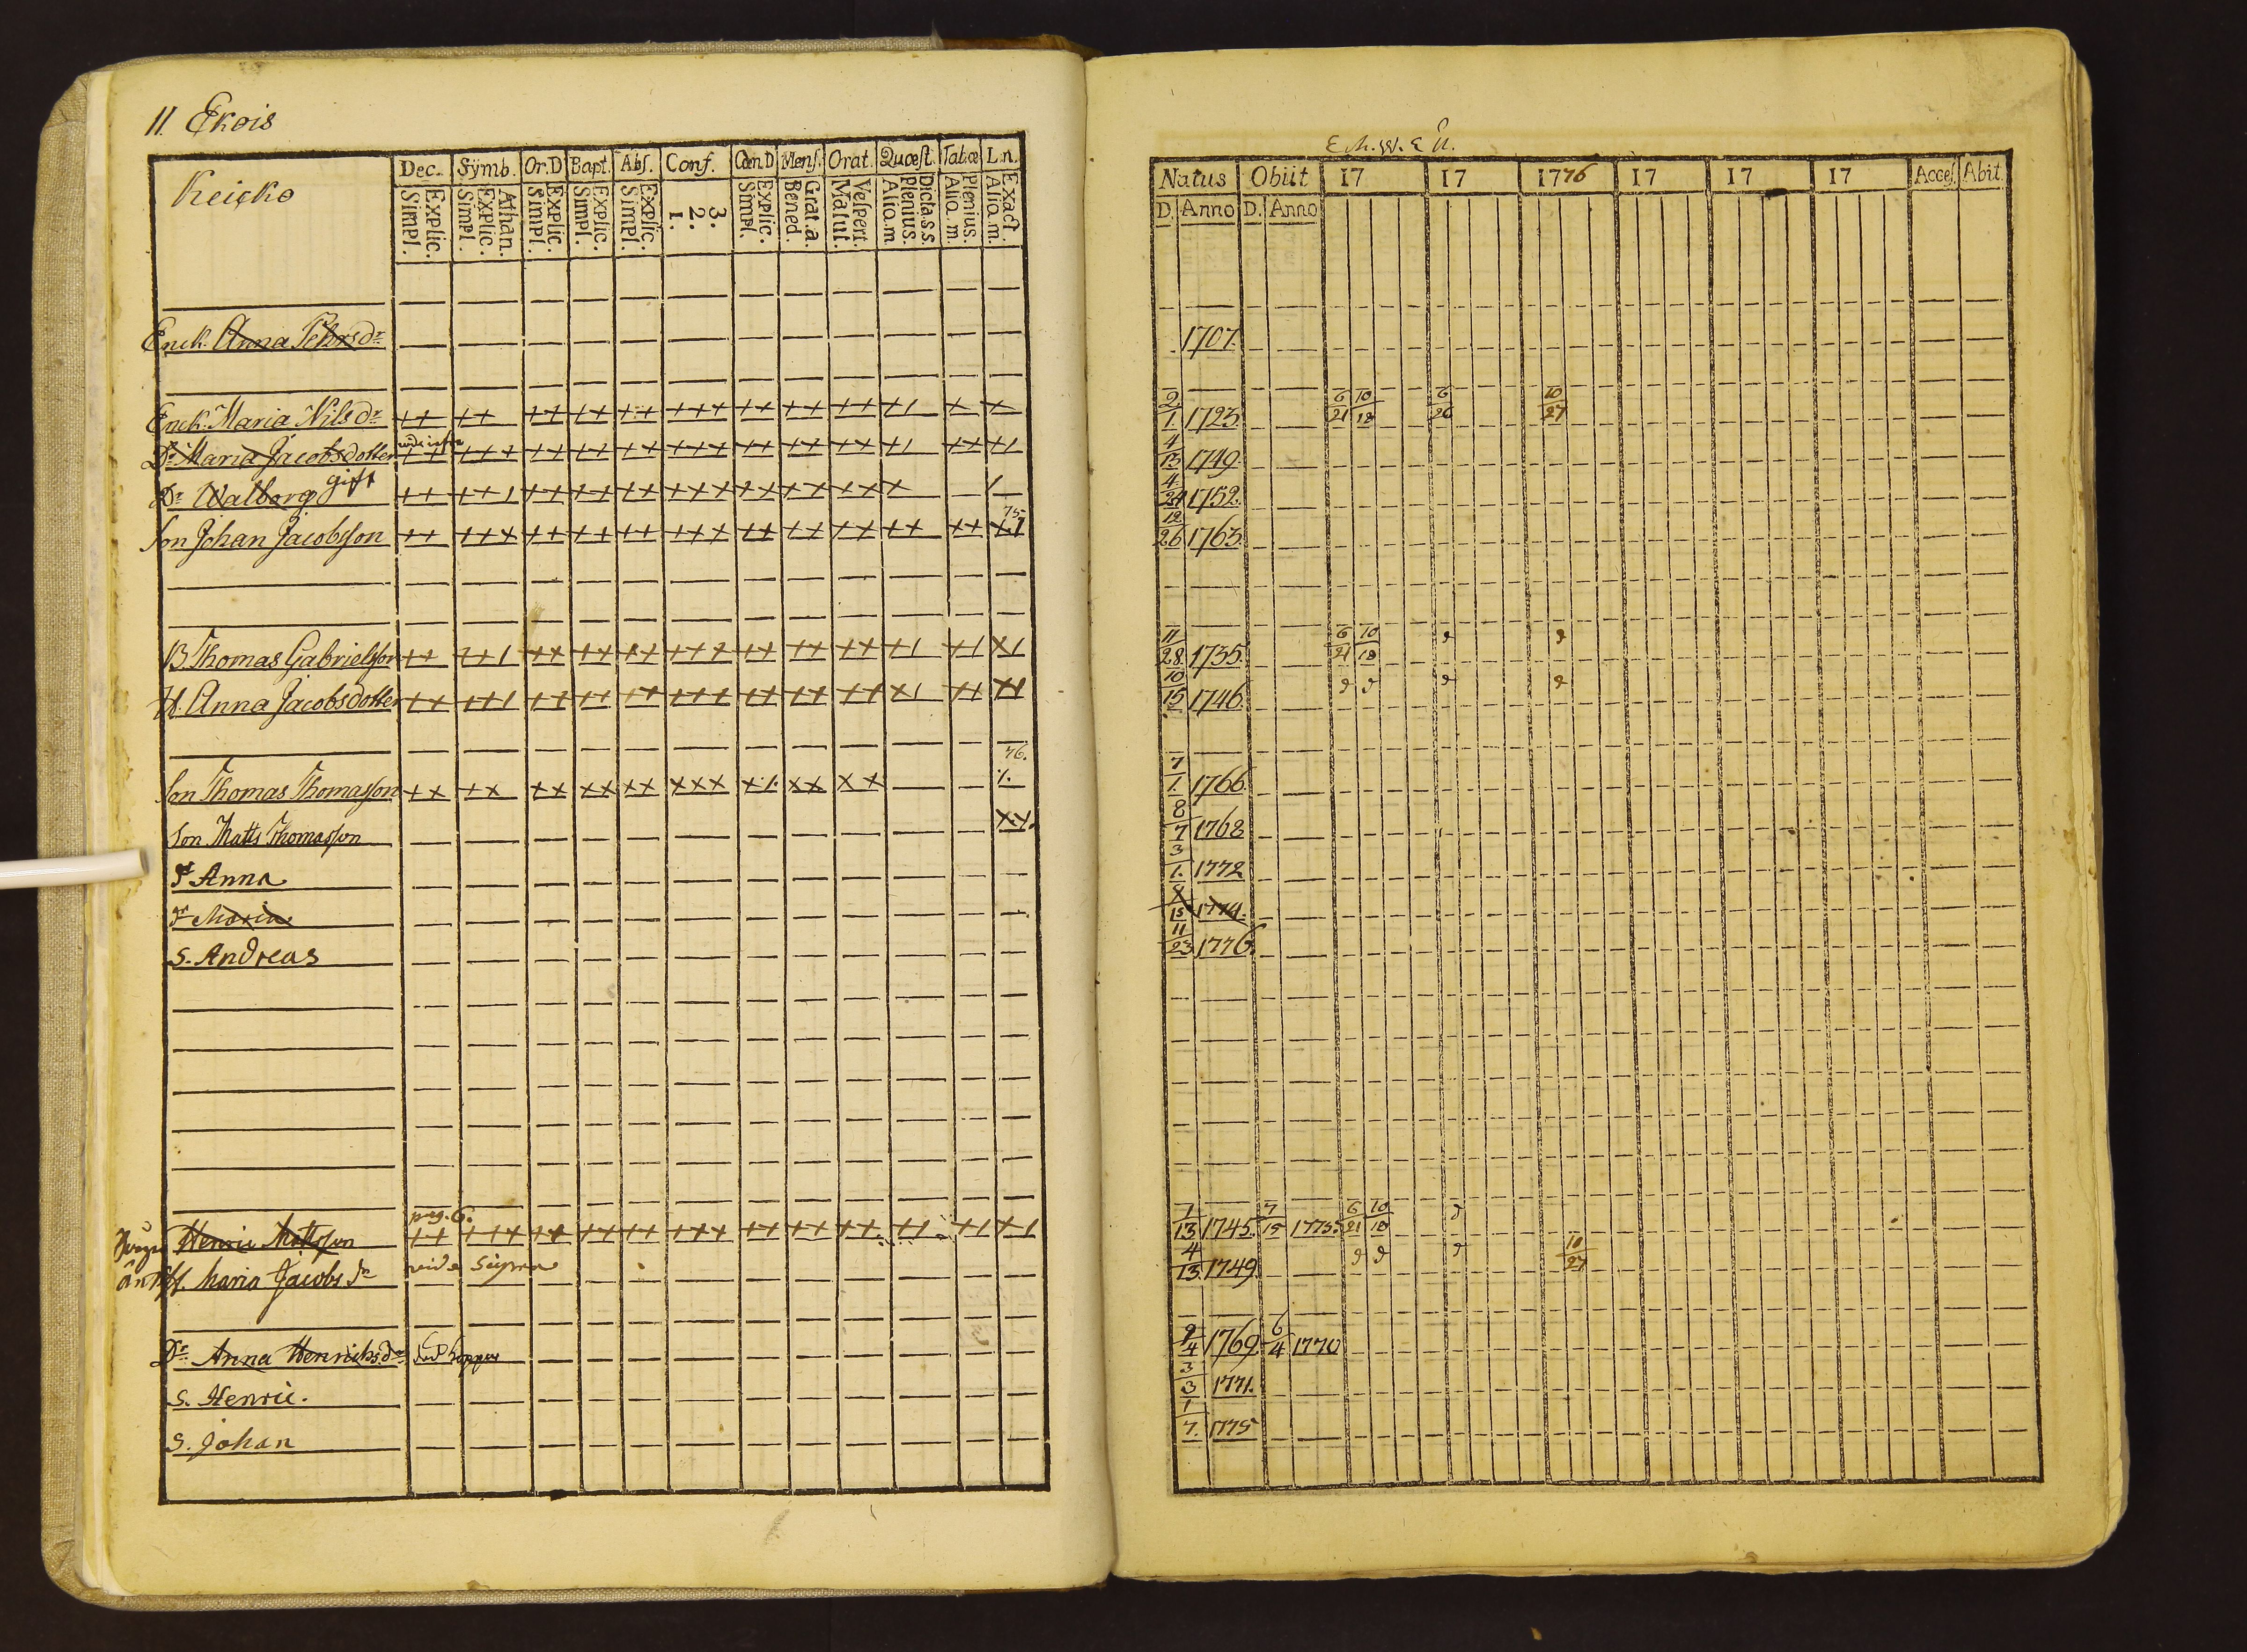 11. Ekois
Keicko
Dec. Symb. Or.D Bapt. Abs. Conf. Cœn D Mens. Orat. Quæst. Tabæ L.n.
Explic. Simpl. Athan. Explic. Simpl. Explic. Simpl. Explic. Simpl. Explic. Simpl. 3. 2. 1. Explic. Simpl. Grat.a. Bened. Vespert. Matut. Dicta.s.s. Plenius. Aliq.m. Plenius. Aliq.m. Exact. Aliq.m.
Enck. Anna Pehrsdr
Enck. Maria Nilsdr ++ ++ ++ ++ ++ +++ ++ ++ ++ +1 + +
Dr Maria Jacobsdotter ++ +++ ++ ++ ++ +++ ++ ++ ++ +1 ++ +1
Dr Walborg gift ++ ++1 ++ ++ ++ +++ ++ ++ ++ + 1
75
Son Johan Jacobsson ++ +++ ++ ++ ++ +++ ++ ++ ++ ++ ++ +1
B. Thomas Gabrielsson ++ ++1 ++ ++ ++ +++ ++ ++ ++ +1 +1 X1
H. Anna Jacobsdotter ++ ++1 ++ ++ ++ +++ ++ ++ ++ X1 ++ ++
76.
Son Thomas Thomasson ++ ++ ++ ++ ++ +++ +1. ++ ++ 1.
Son Matts Thomasson ++.
dr Anna
dr Maria
S. Andreas
pag. 6.
Henric Mattsson ++ +++ ++ ++ ++ +++ ++ ++ ++ +1 +1 +1
H. Maria Jacobsdr vide Supra
Dr Anna Henrichsdr död koppor
S. Henric.
S. Johan
Natus Obiit 17 17 1776 17 17 17 Acces. Abit
D. Anno D. Anno
1707.
2/1 1723 6/21 10/18 6/26 10/27
4/13 1749
4/24 1752.
12/26 1763
11/28 1735. 6/21 10/18 d d
10/15 1746. d d d d
7/1. 1766.
8/7 1768
3/1. 1772
8/15 1774.
11/23 1776.
1/13 1745. 7/15 1775. 6/21 10/18 d
4/13 1749. d d d 10/27
9/4 1769. 6/4 1770
3/3 1771.
1/7. 1775